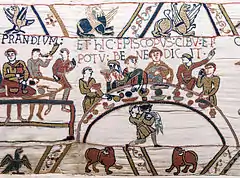 PRANDIVM:
ET·HIC·EPISCOPVS:CIBV:ET:
POTV:BENEDICIT·